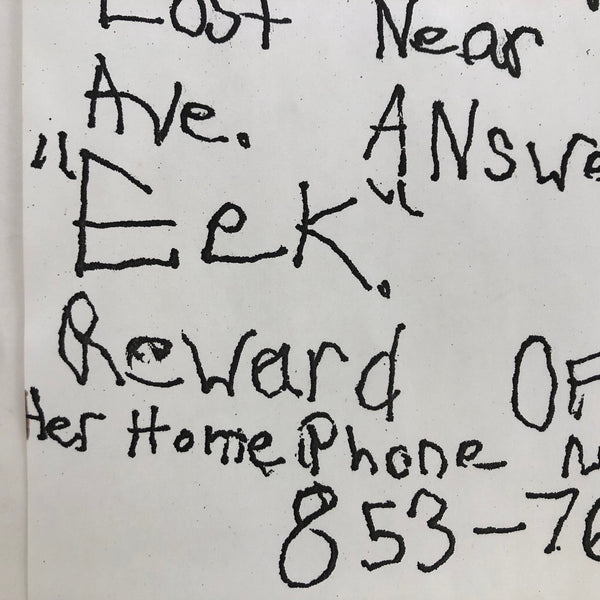 Lost Near
Ave. Answe
"Eek."
Reward Of
Her Home Phone n
853-76